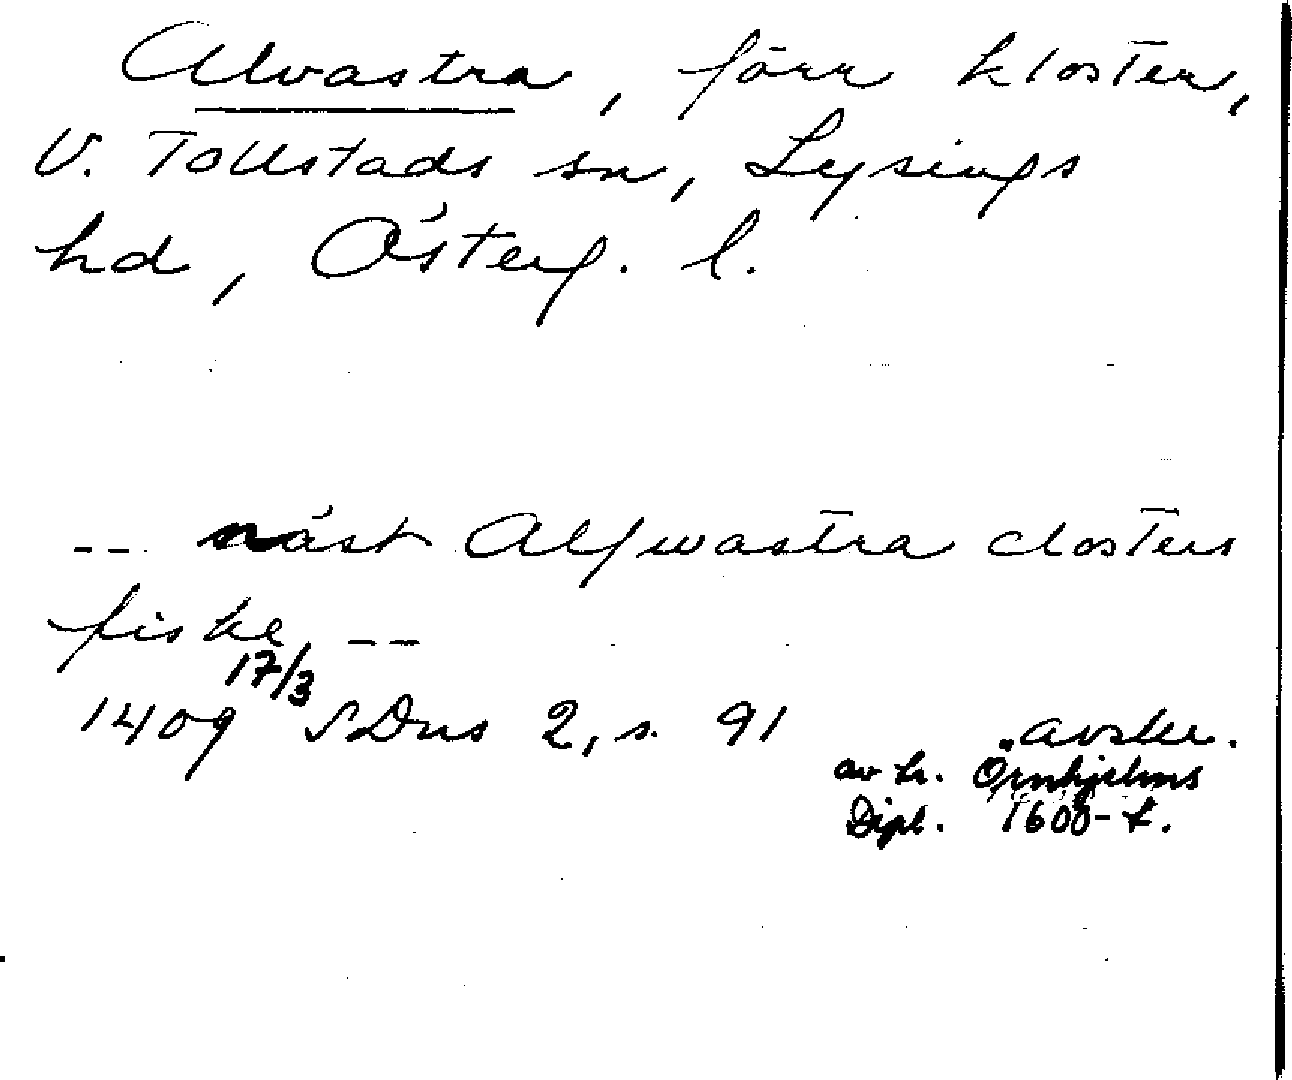 Alvastra, förr kloster,
V. Tollstads sn, Lysings
hd, Österg. l.
-- näst Alfwastra closters
fiske --
1409 17/3 SDns 2, s. 91 avskr.
av h. Örnhjelms
Dipl. 1600-t.